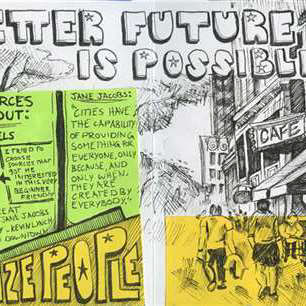 ETTER FUTURE
IS POSSIBLE
RCES
OUT:
ELS
I TRIED TO
CHOOSE
SOURCES THAT
GOT ME
INTERESTED
IN THIS VERY
BEGINNER
FRIENDLY
EAT
JANE JACOBS
KEVIN LYNCH
DOWNTOWN
JANE JACOBS:
"CITIES HAVE
THE CAPABILITY
OF PROVIDING
SOMETHING FOR
EVERYONE, ONLY
BECAUSE, AND
ONLY WHEN,
THEY ARE
CREATED BY
EVERYBODY."
CAFE
IZE PEOPLE